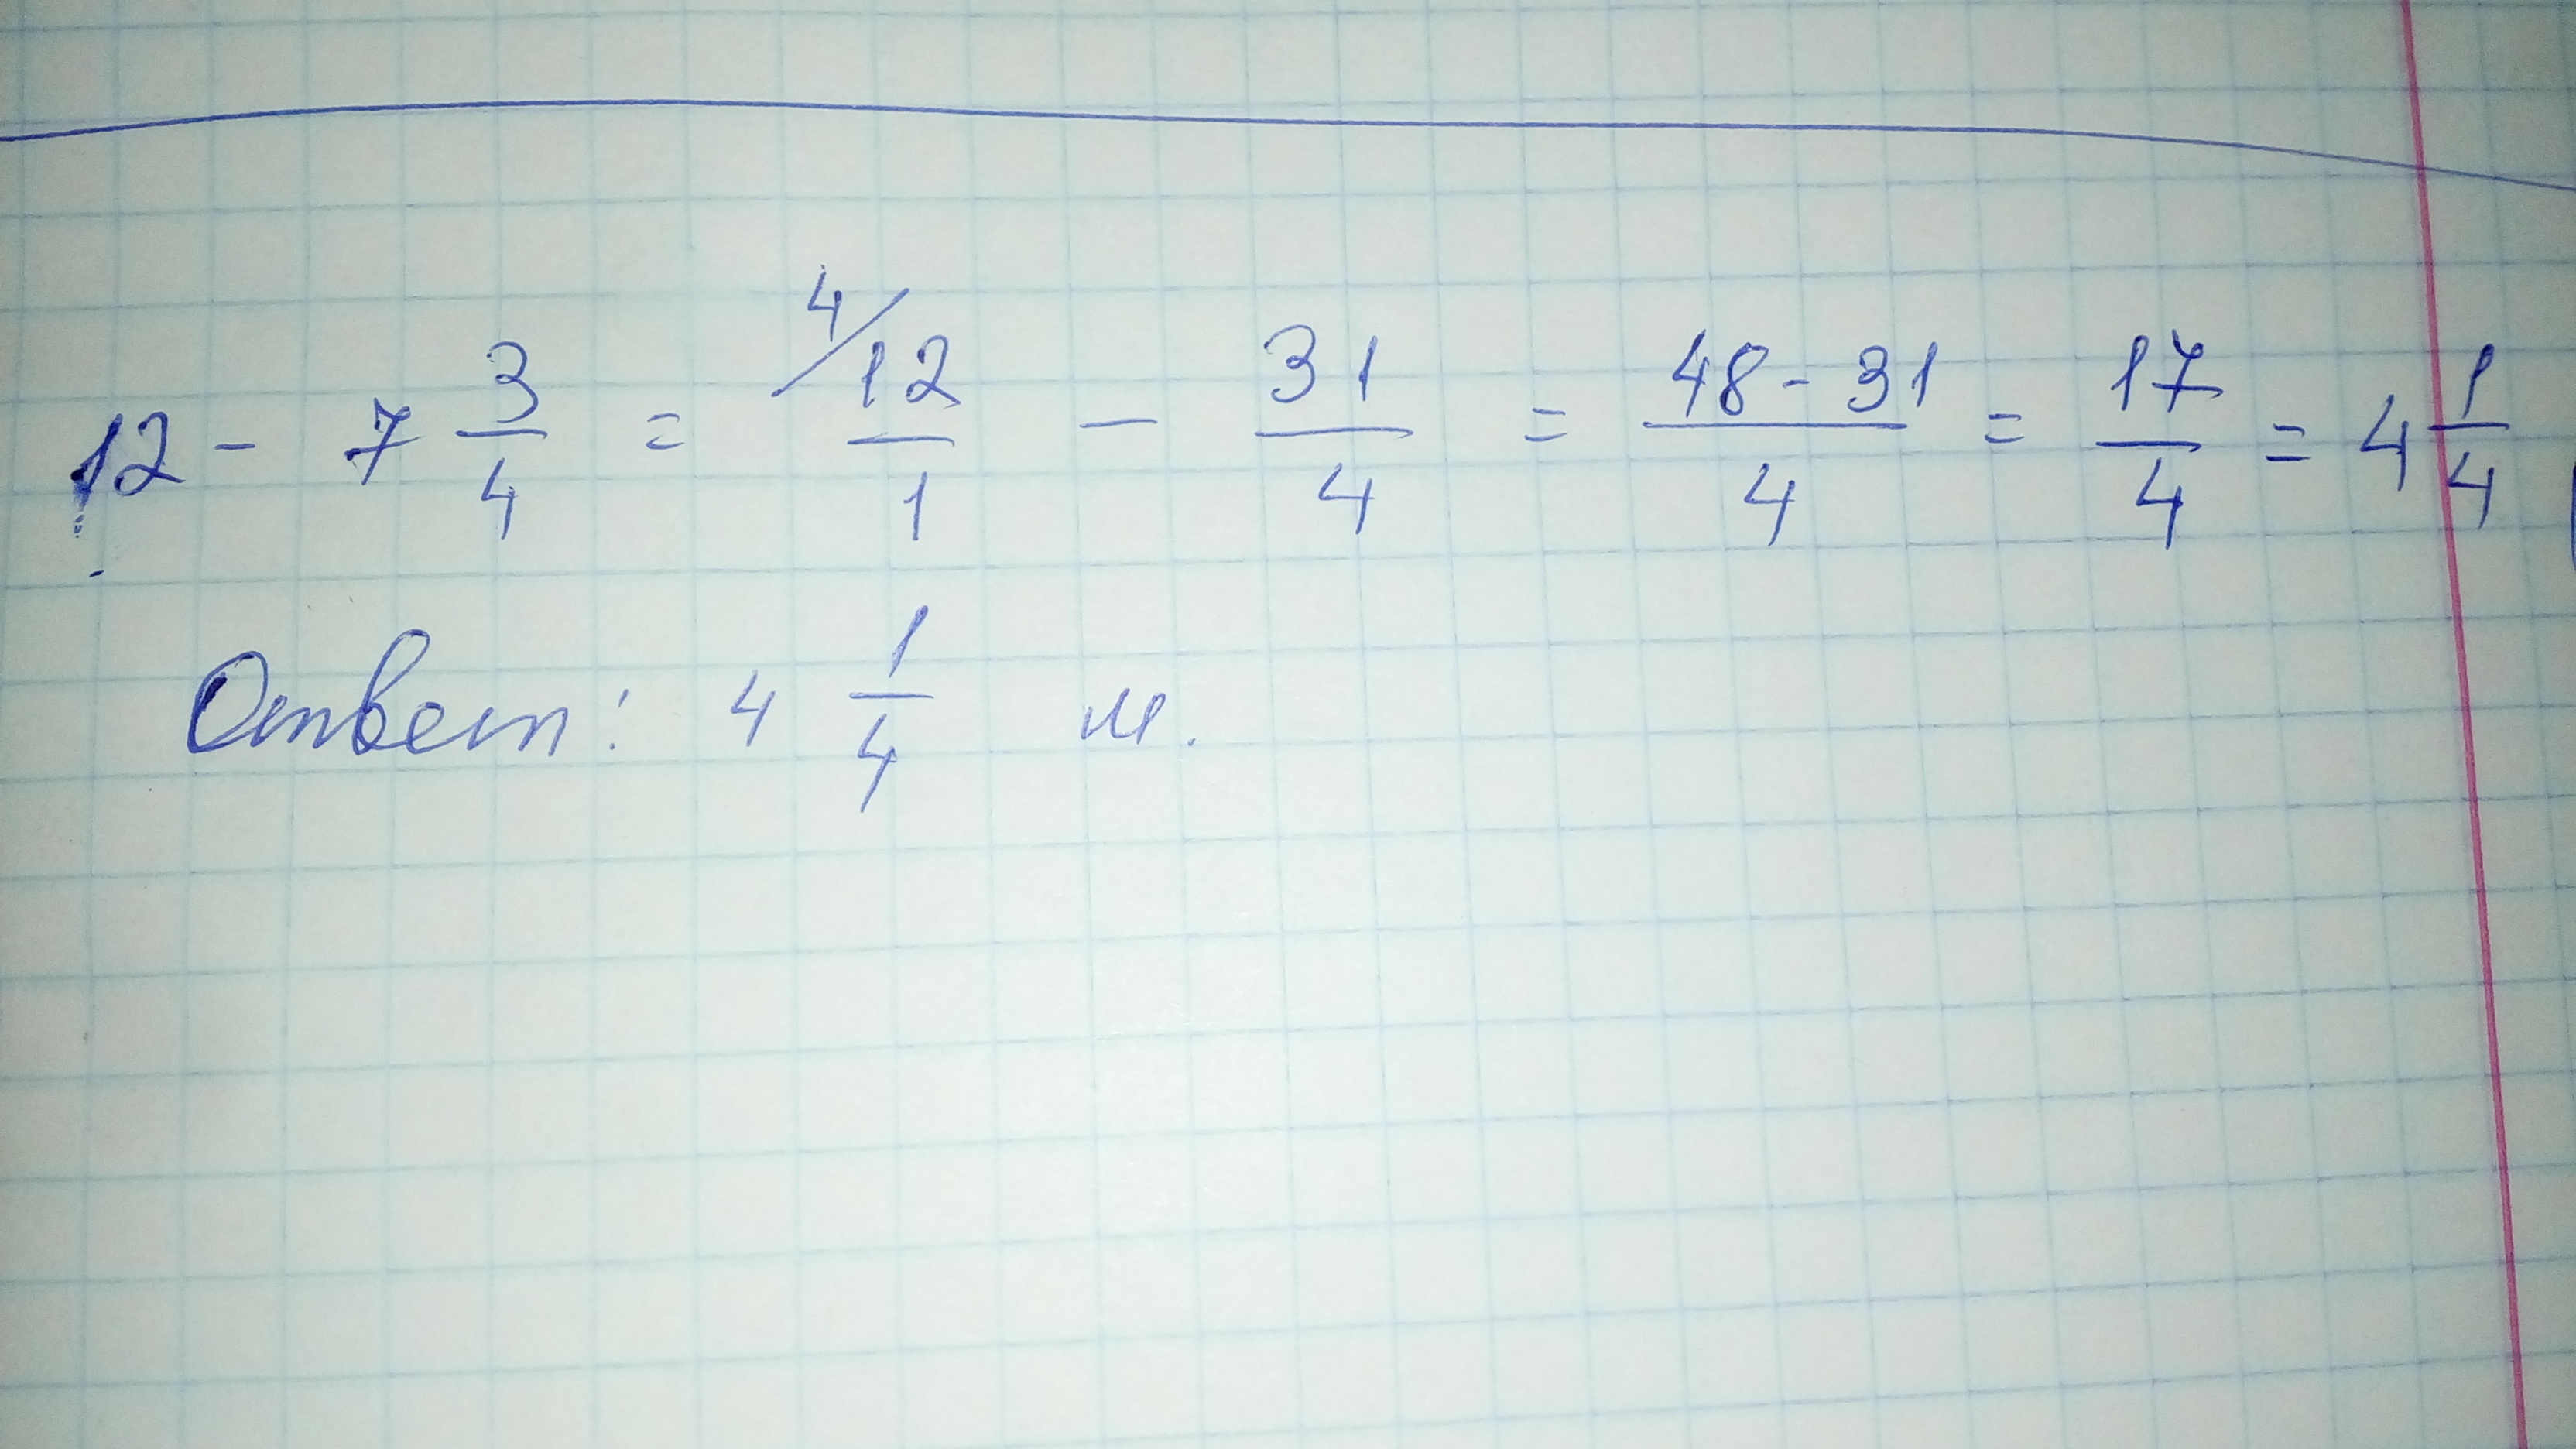 12 - 7 3/4 = 4/ 12/1 - 31/4 = 48-31/4 = 17/4 = 4 1/4
Ответ: 4 1/4 м.